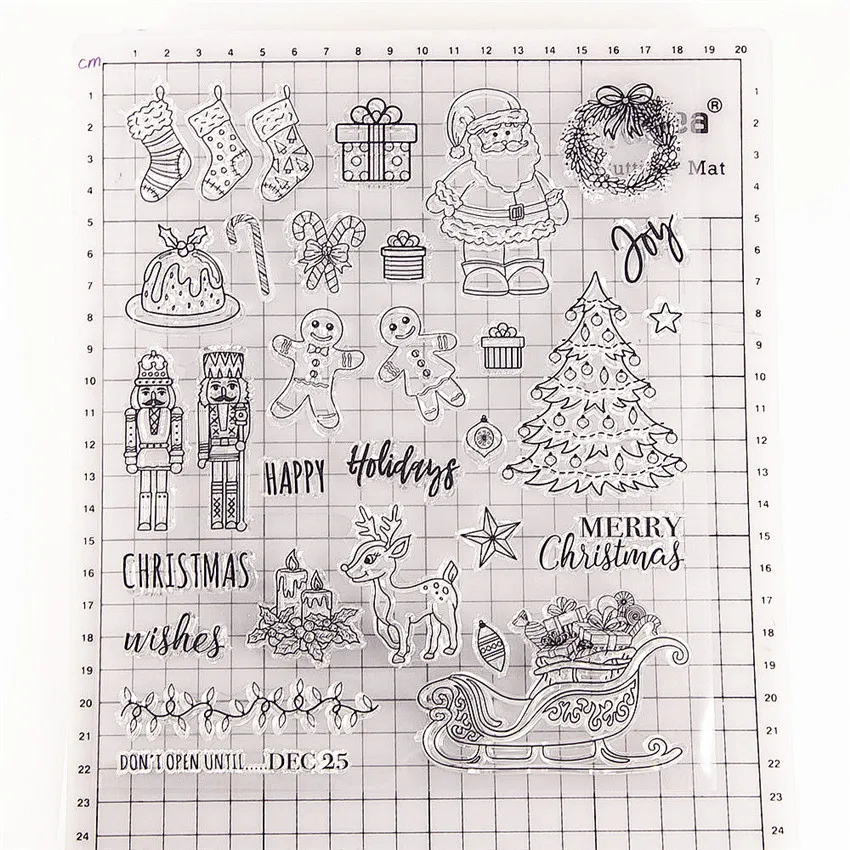 1 2 3 4 5 6 7 8 9 10 11 12 13 14 15 16 17 18 19 20
cm
1 1
®
2 2
3 3
Mat
4 4
5 5
Joy
6 6
7 7
8 8
9 9
10 10
11 11
12 12
HAPPY Holidays
13 13
14 14
MERRY
15 15
Christmas
CHRISTMAS
16 16
17 17
wishes
18 18
19 19
20 20
21 21
DON'T OPEN UNTIL.....DEC 25
22 22
23 23
24 24